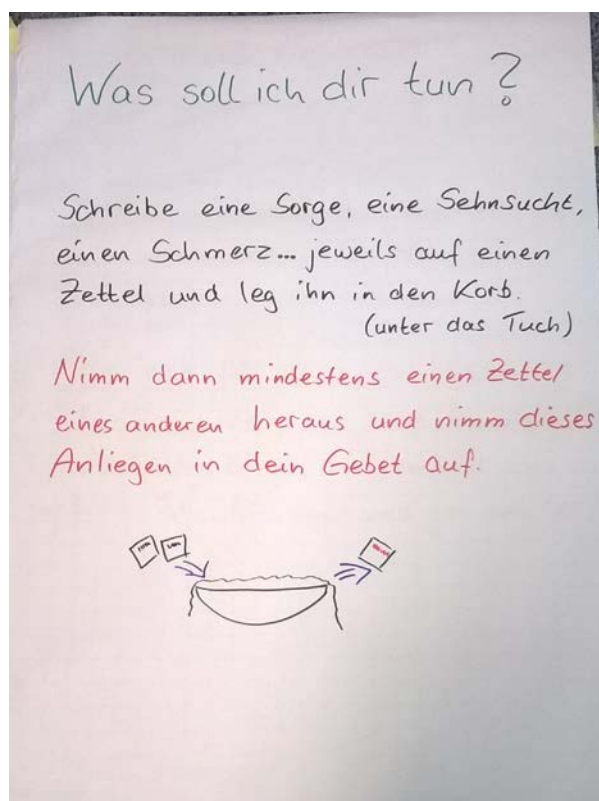 Was soll ich dir tun?
Schreibe eine Sorge, eine Sehnsucht,
einen Schmerz... jeweils auf einen
Zettel und leg ihn in den Korb.
(unter das Tuch)
Nimm dann mindestens einen Zettel
eines anderen heraus und nimm dieses
Anliegen in dein Gebet auf.